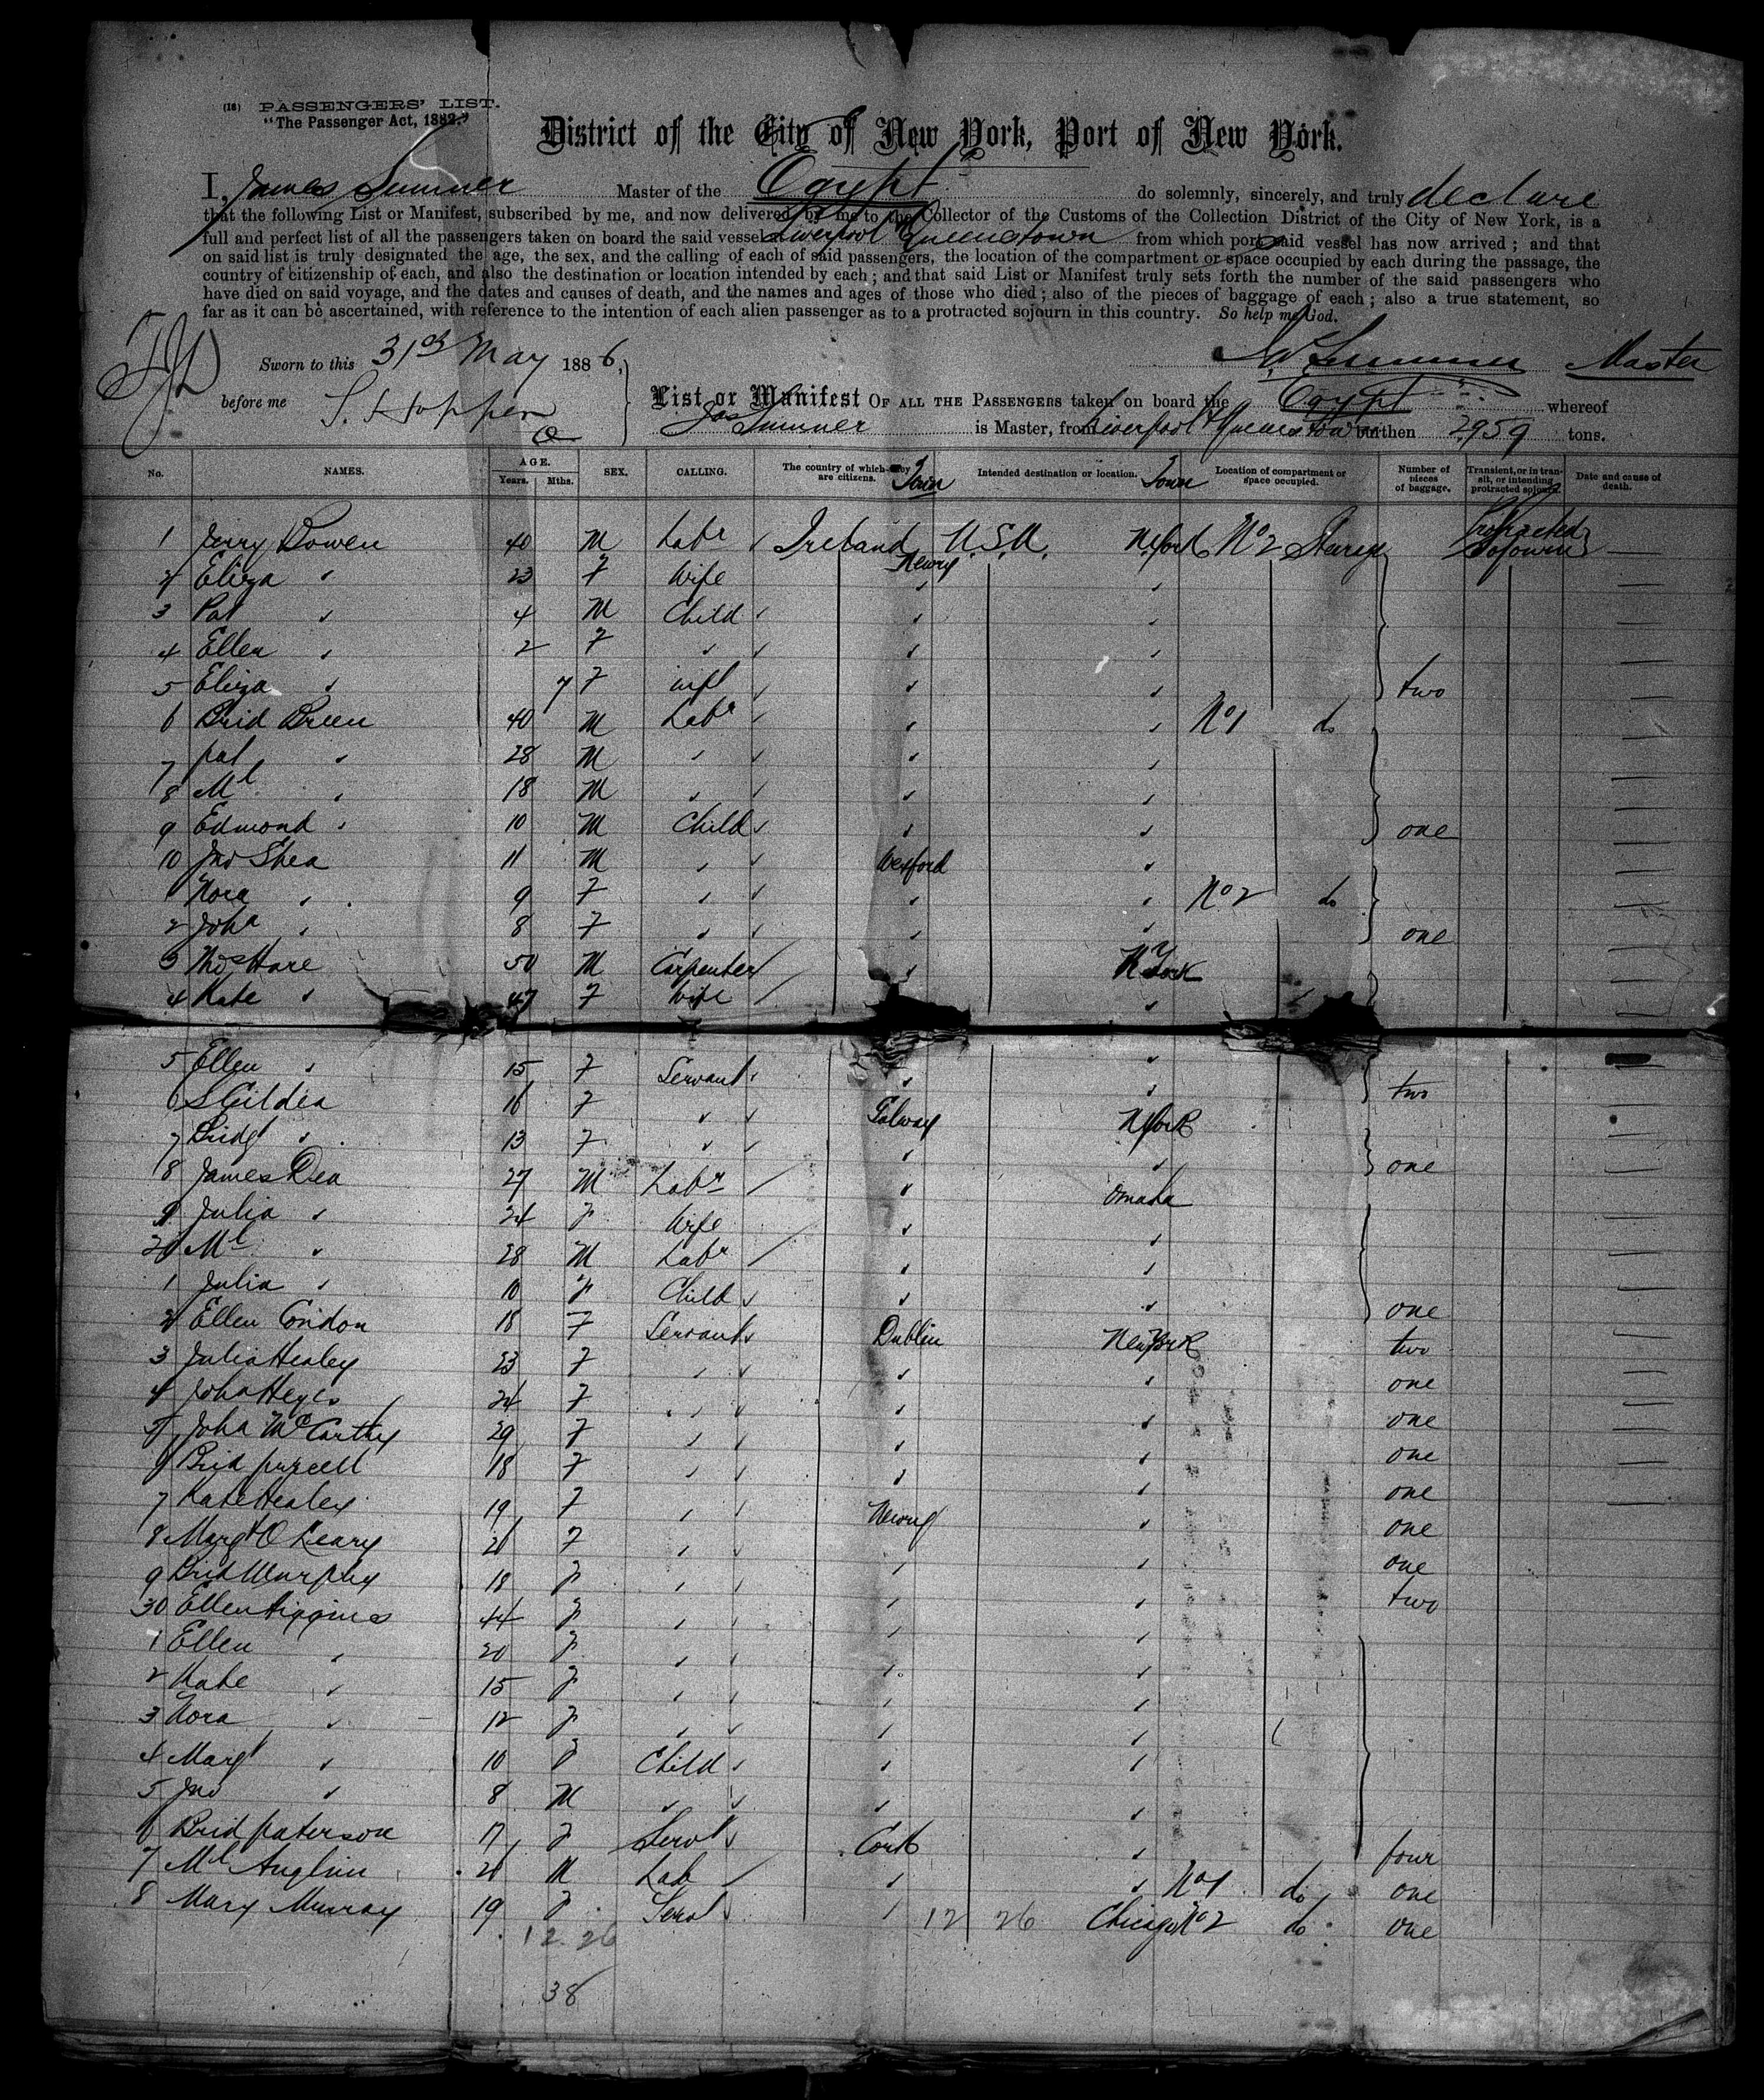 (18) PASSENGERS' LIST.
"The Passenger Act, 1882."
District of the City of New York, Port of New York.
I, James Sumner Master of the Egypt do solemnly, sincerely, and truly declare
that the following List or Manifest, subscribed by me, and now delivered by me to the Collector of the Customs of the Collection District of the City of New York, is a
full and perfect list of all the passengers taken on board the said vessel Liverpool & Queenstown from which port said vessel has now arrived; and that
on said list is truly designated the age, the sex, and the calling of each of said passengers, the location of the compartment or space occupied by each during the passage, the
country of citizenship of each, and also the destination or location intended by each; and that said List or Manifest truly sets forth the number of the said passengers who
have died on said voyage, and the dates and causes of death, and the names and ages of those who died; also of the pieces of baggage of each; also a true statement, so
far as it can be ascertained, with reference to the intention of each alien passenger as to a protracted sojourn in this country. So help me God.
Sworn to this 31st May 1886, Sumner Master
before me S. Hopper List or Manifest OF ALL THE PASSENGERS taken on board the Egypt whereof
Jas Sumner is Master, from Liverpool & Queenstown burthen 2959 tons.
No. NAMES. AGE. Years. Mths. SEX. CALLING. The country of which they are citizens. Town Intended destination or location. Town Location of compartment or space occupied. Number of pieces of baggage. Transient, or in transit, or intending protracted sojourn. Date and cause of death.
1 Jerry Bowen 40 M Labr Ireland Newry U.S.A. N York No 2 Steerage Protracted Sojourn —
2 Eliza " 23 F Wife " " —
3 Pat " 4 M Child " " —
4 Ellen " 2 F " " " —
5 Eliza " 7 F inft " " two —
6 Brid Breen 40 M Labr " " No 1 do —
7 Pat " 28 M " " " —
8 Ml " 18 M " " " —
9 Edmond " 10 M Child " " one —
10 Jno Shea 11 M " Wexford " —
1 Nora " 9 F " " " No 2 do —
2 Joha " 8 F " " " one —
3 Thos Hare 50 M Carpenter " N York —
4 Kate " 47 F Wife " —
5 Ellen " 15 F Servant " " two —
6 S Gildea 16 F " Galway N York —
7 Bridgt " 13 F " " " one —
8 James Dea 27 M Labr " Omaha —
9 Julia " 24 F Wife " " —
20 Ml " 28 M Labr " " —
1 Julia " 10 F Child " " one —
2 Ellen Condon 18 F Servant Dublin New York two —
3 Julia Healey 23 F " " " one —
4 Joha Heyes 24 F " " " one —
5 Joha McCarthy 29 F " " " one —
6 Brid Purcell 18 F " " " one —
7 Kate Healey 19 F " Newry " one —
8 Margt O Leary 21 F " " " one
9 Brid Murphy 18 F " " " two
30 Ellen Higgins 44 F " " "
1 Ellen " 20 F " " "
2 Kate " 15 F " " "
3 Nora " 12 F " " "
4 Margt " 10 F Child " "
5 Jno " 8 M " " "
6 Brid Paterson 17 F Servt Cork " four
7 Ml Anglim 21 M Lab " " No 1 do one
8 Mary Murray 19 F Servt " 12 26 Chicago No 2 do one
12 26
38